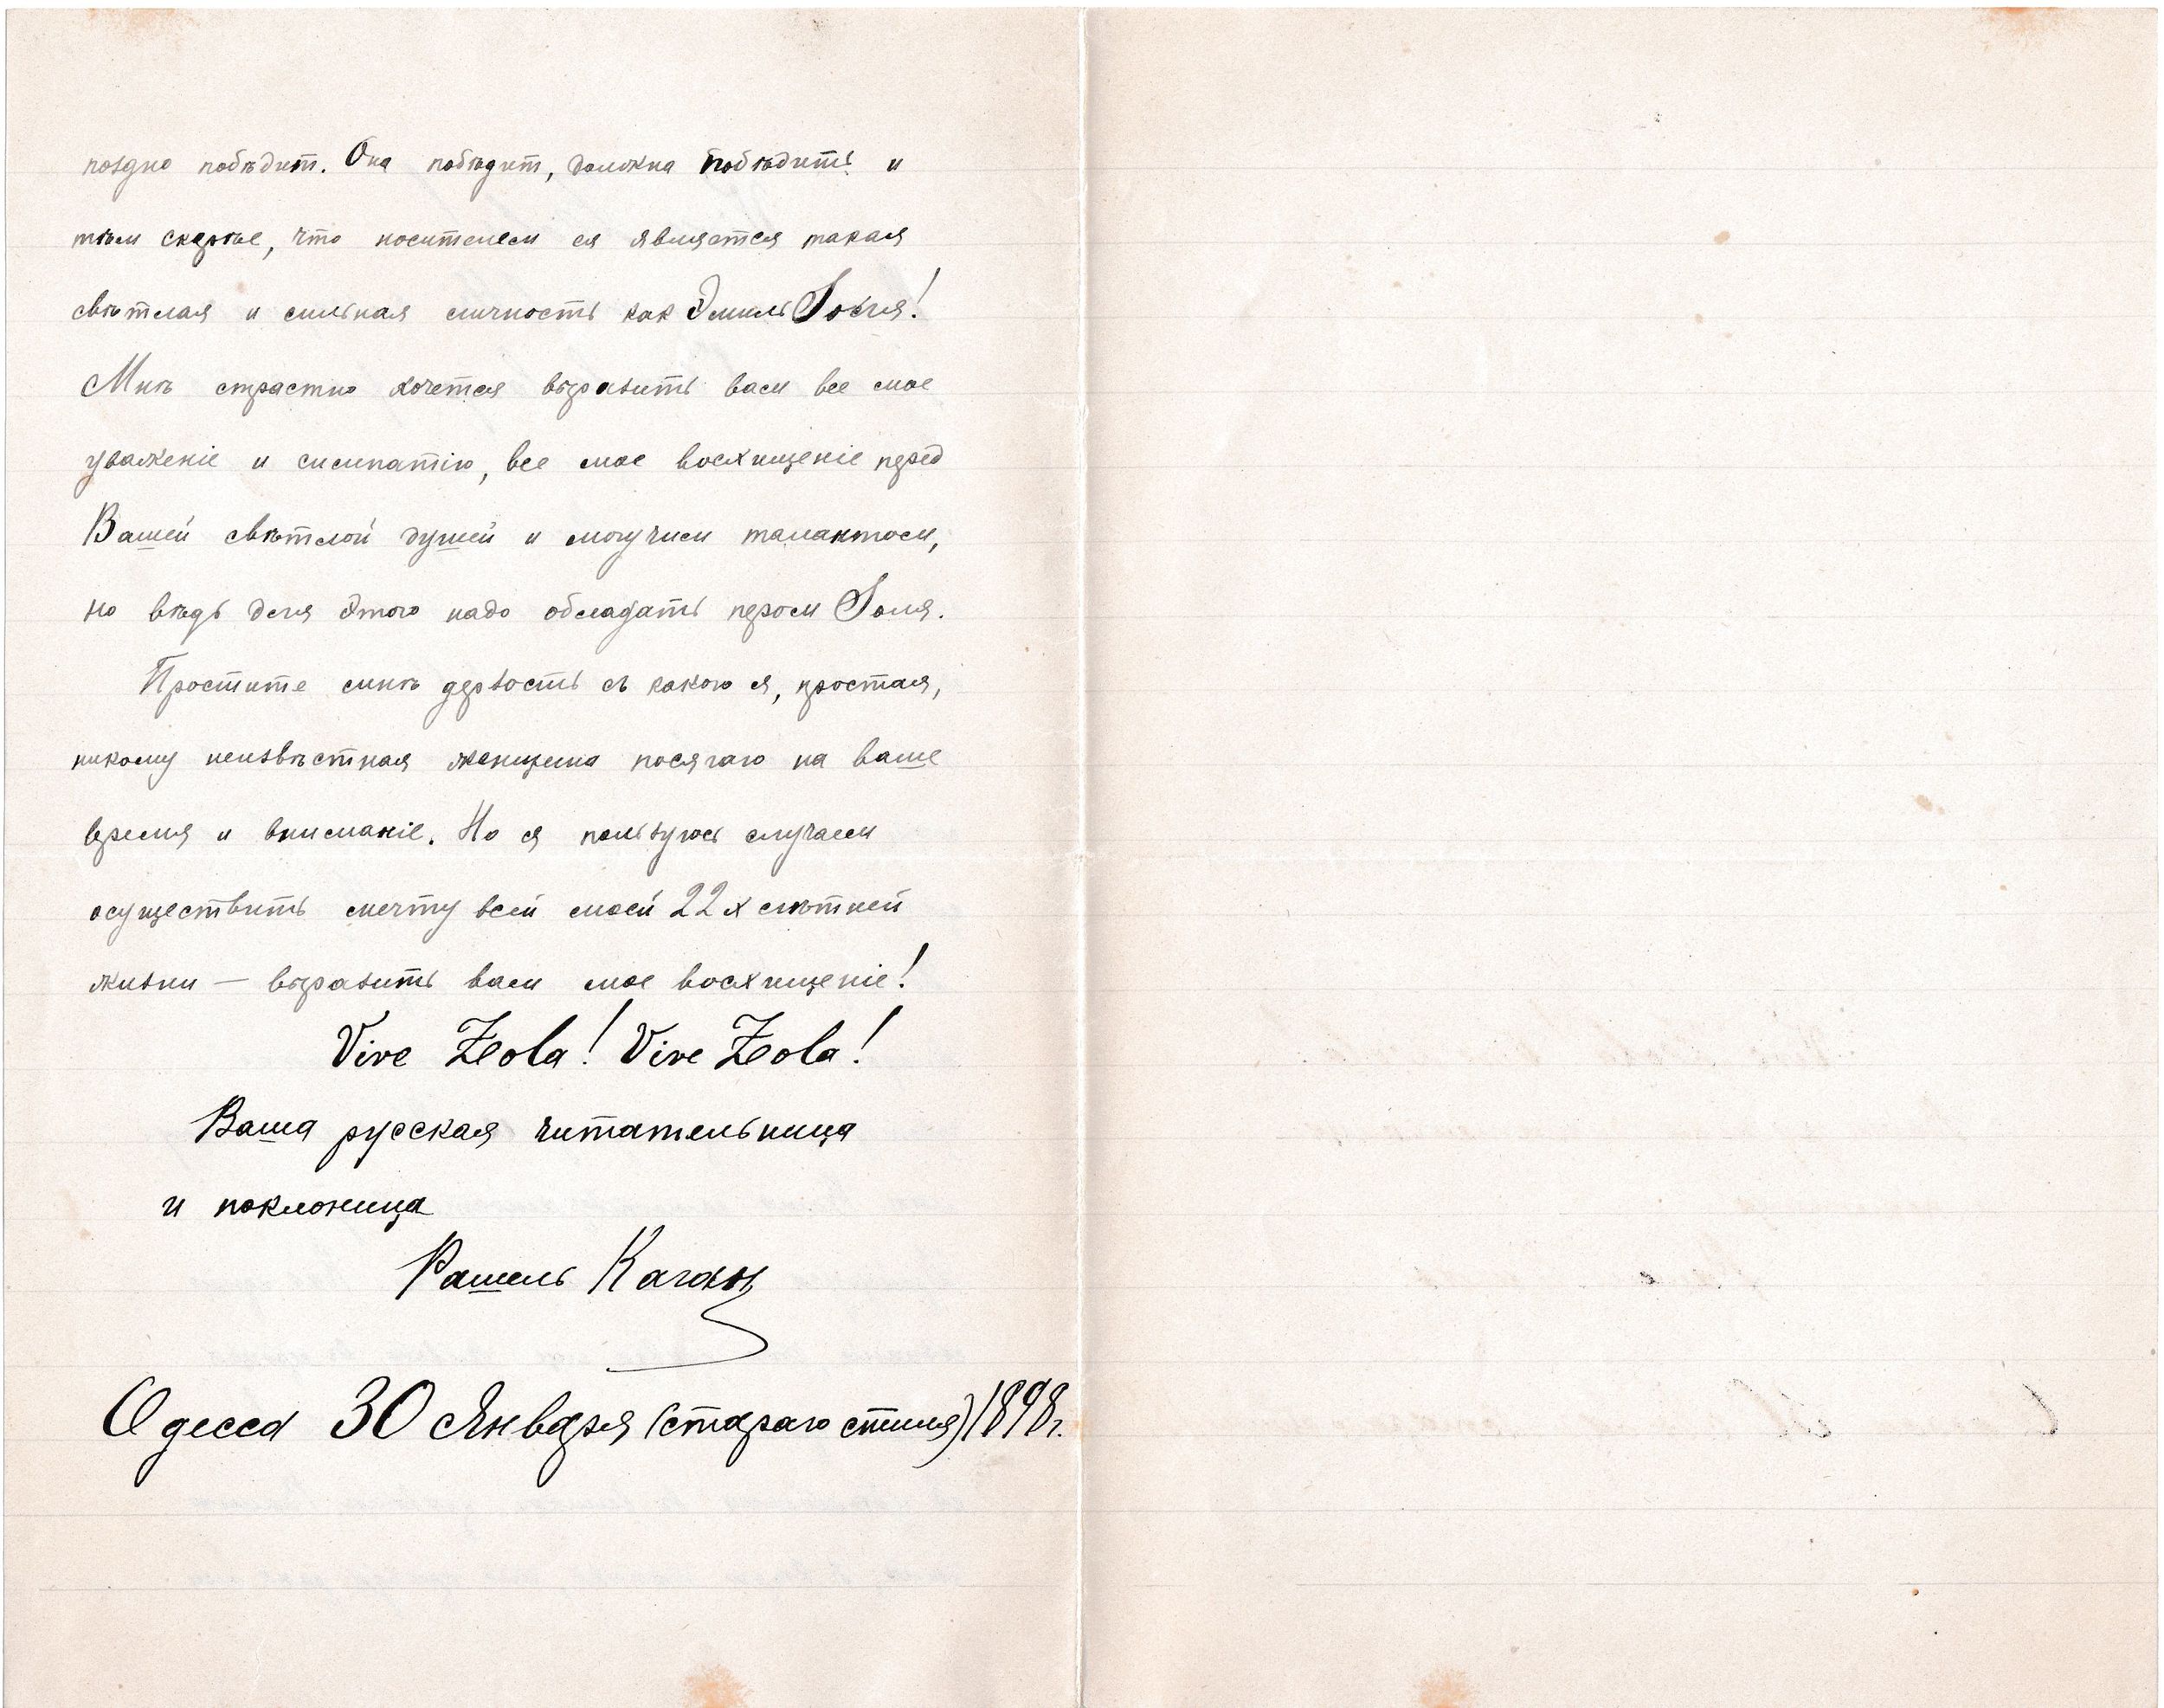 поздно побѣдит. Она побѣдит, должна побѣдить и
тѣм скорѣе, что носителем ея является такая
свѣтлая и сильная личность как Эмиль Золя!
Мнѣ страстно хочется выразить вам все мое
уваженіе и симпатію, все мое восхищеніе перед
Вашей свѣтлой душей и могучим талантом,
но вѣдь для этого надо обладать пером Золя.
Простите мнѣ дерзость съ какою я, простая,
никому неизвѣстная женщина посягаю на ваше
время и вниманіе. Но я пользуюсь случаем
осуществить мечту всей моей 22х лѣтней
жизни — выразить вам мое восхищеніе!
Vive Zola! Vive Zola!
Ваша русская читательница
и поклоница
Рашель Каган
Одесса 30 Января (стараго стиля) 1898г.